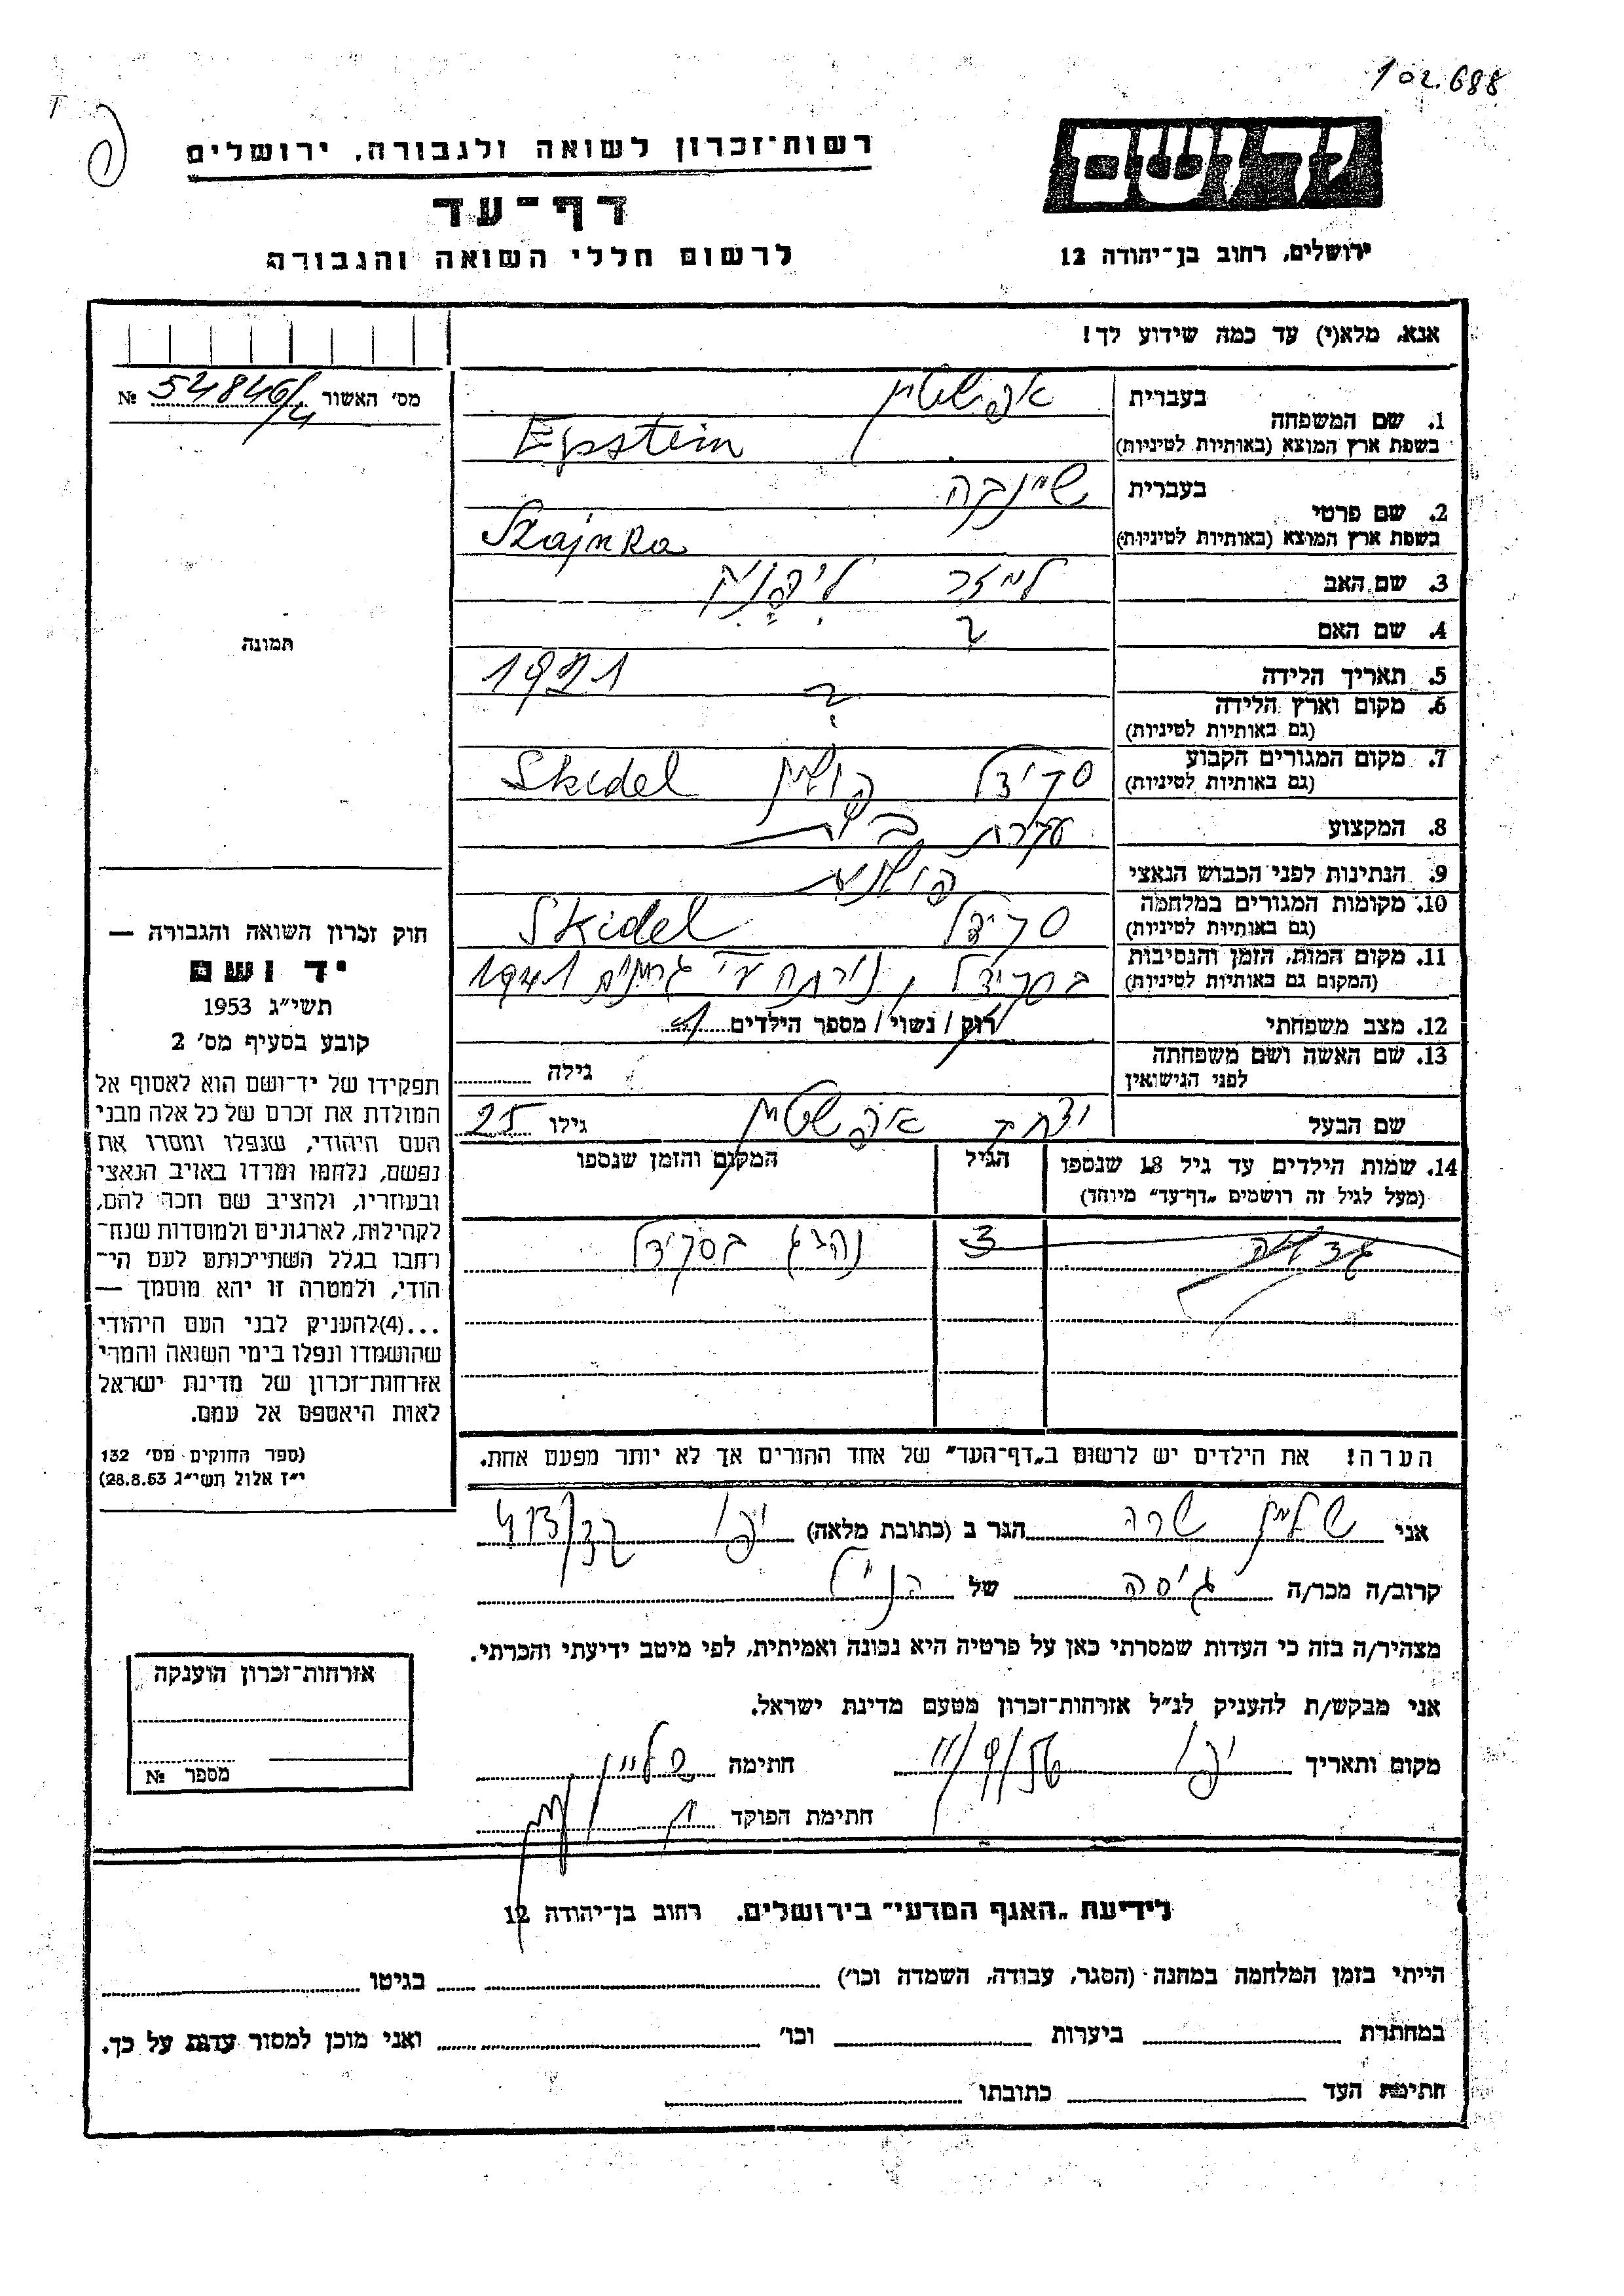 102.688
רשות־זכרון לשואה ולגבורה, ירושלים
דף־עד
לרשום חללי השואה והגבורה
יד ושם
ירושלים, רחוב בן־יהודה 12
אנא, מלא(י) עד כמה שידוע לך!
מס׳ האשור 54846/4 №
תמונה
1. שם המשפחה
בעברית אפשטיין
בשפת ארץ המוצא (באותיות לטיניות) Epstein
2. שם פרטי
בעברית שיינקה
בשפת ארץ המוצא (באותיות לטיניות) Szajnka
3. שם האב לייזר
4. שם האם ?
5. תאריך הלידה 1921
6. מקום וארץ הלידה ?
(גם באותיות לטיניות)
7. מקום המגורים הקבוע סקידל פולין Skidel
(גם באותיות לטיניות)
8. המקצוע עקרת בית
9. הנתינות לפני הכבוש הנאצי פולנית
10. מקומות המגורים במלחמה סקידל Skidel
(גם באותיות לטיניות)
11. מקום המות, הזמן והנסיבות בסקידל, נורתה ע״י גרמנים 1941
(המקום גם באותיות לטיניות)
12. מצב משפחתי רוק / נשוי / מספר הילדים 1
13. שם האשה ושם משפחתה
לפני הנישואין
גילה
שם הבעל יצחק אפשטיין גילו 25
14. שמות הילדים עד גיל 18 שנספו
(מעל לגיל זה רושמים „דף־עד״ מיוחד)
הגיל
המקום והזמן שנספו
3 נהרג בסקידל
הערה! את הילדים יש לרשום ב„דף־העד״ של אחד ההורים אך לא יותר מפעם אחת.
חוק זכרון השואה והגבורה —
יד ושם
תשי״ג 1953
קובע בסעיף מס׳ 2
תפקידו של יד־ושם הוא לאסוף אל
המולדת את זכרם של כל אלה מבני
העם היהודי, שנפלו ומסרו את
נפשם, נלחמו ומרדו באויב הנאצי
ובעוזריו, ולהציב שם וזכר להם,
לקהילות, לארגונים ולמוסדות שנח־
רחבו בגלל השתייכותם לעם הי־
הודי, ולמטרה זו יהא מוסמך —
...(4)להעניק לבני העם היהודי
שהושמדו ונפלו בימי השואה והמרי
אזרחות־זכרון של מדינת ישראל
לאות היאספם אל עמם.
(ספר החוקים מס׳ 132
י״ז אלול תשי״ג 28.8.53)
אני שליין שרה הגר ב (כתובת מלאה) יפו
קרוב/ה מכר/ה גיסה של הנ״ל
מצהיר/ה בזה כי העדות שמסרתי כאן על פרטיה היא נכונה ואמיתית, לפי מיטב ידיעתי והכרתי.
אני מבקש/ת להעניק לנ״ל אזרחות־זכרון מטעם מדינת ישראל.
מקום ותאריך יפו חתימה
חתימת הפוקד
אזרחות־זכרון הוענקה
מספר №
לידיעת „האגף המדעי״ בירושלים. רחוב בן־יהודה 12
הייתי בזמן המלחמה במחנה (הסגר, עבודה, השמדה וכו׳) בגיטו
במחתרת ביערות וכו׳ ואני מוכן למסור עדות על כך.
חתימת העד כתובתו